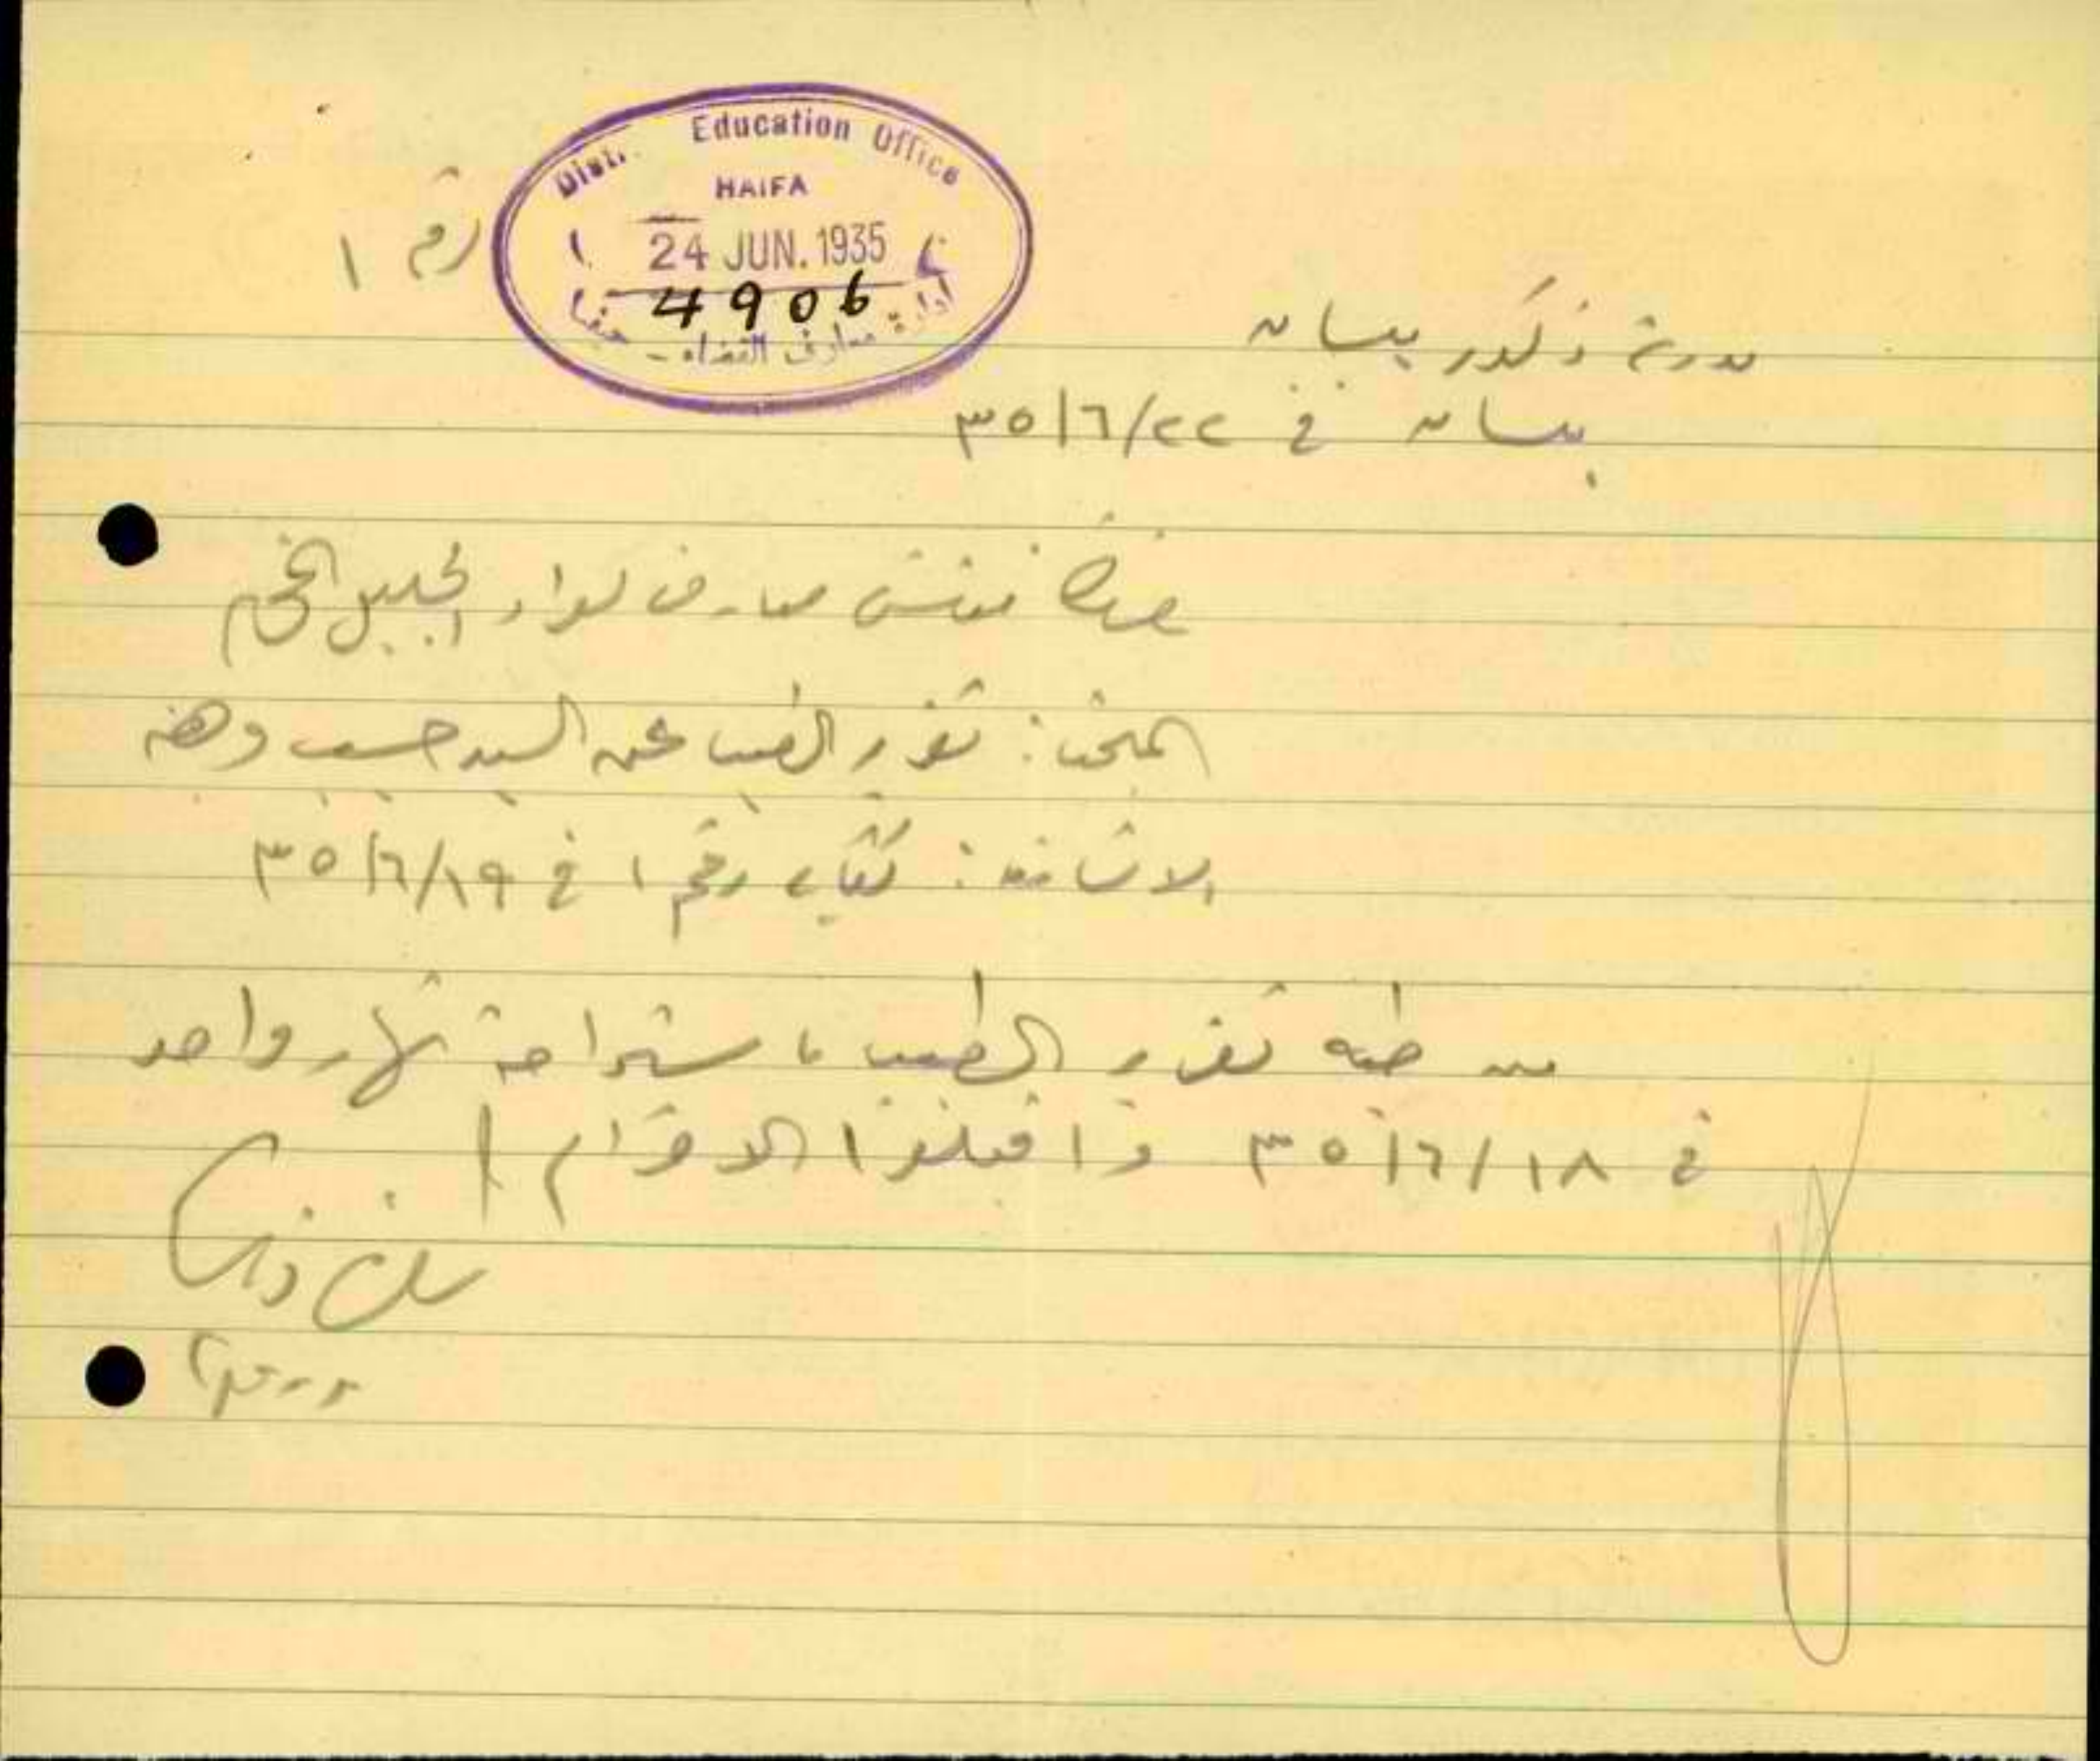 Distr. Education Office
HAIFA
24 JUN. 1935
4906
ادارة معارف القضاء - حيفا
رقم ١
مدرسة ذكور بيسان
بيسان في ٢٢/٦/٣٥
حضرة مفتش معارف لواء الجليل الفخم
المبحث: تقرير الطبيب عن السيد حسيب وهبه
الاشارة: كتابي رقم ١ في ١٩/٦/٣٥
من طيه تقرير الطبيب باستراحة نهار واحد
في ١٨/٦/٣٥ واقبلوا الاحترام